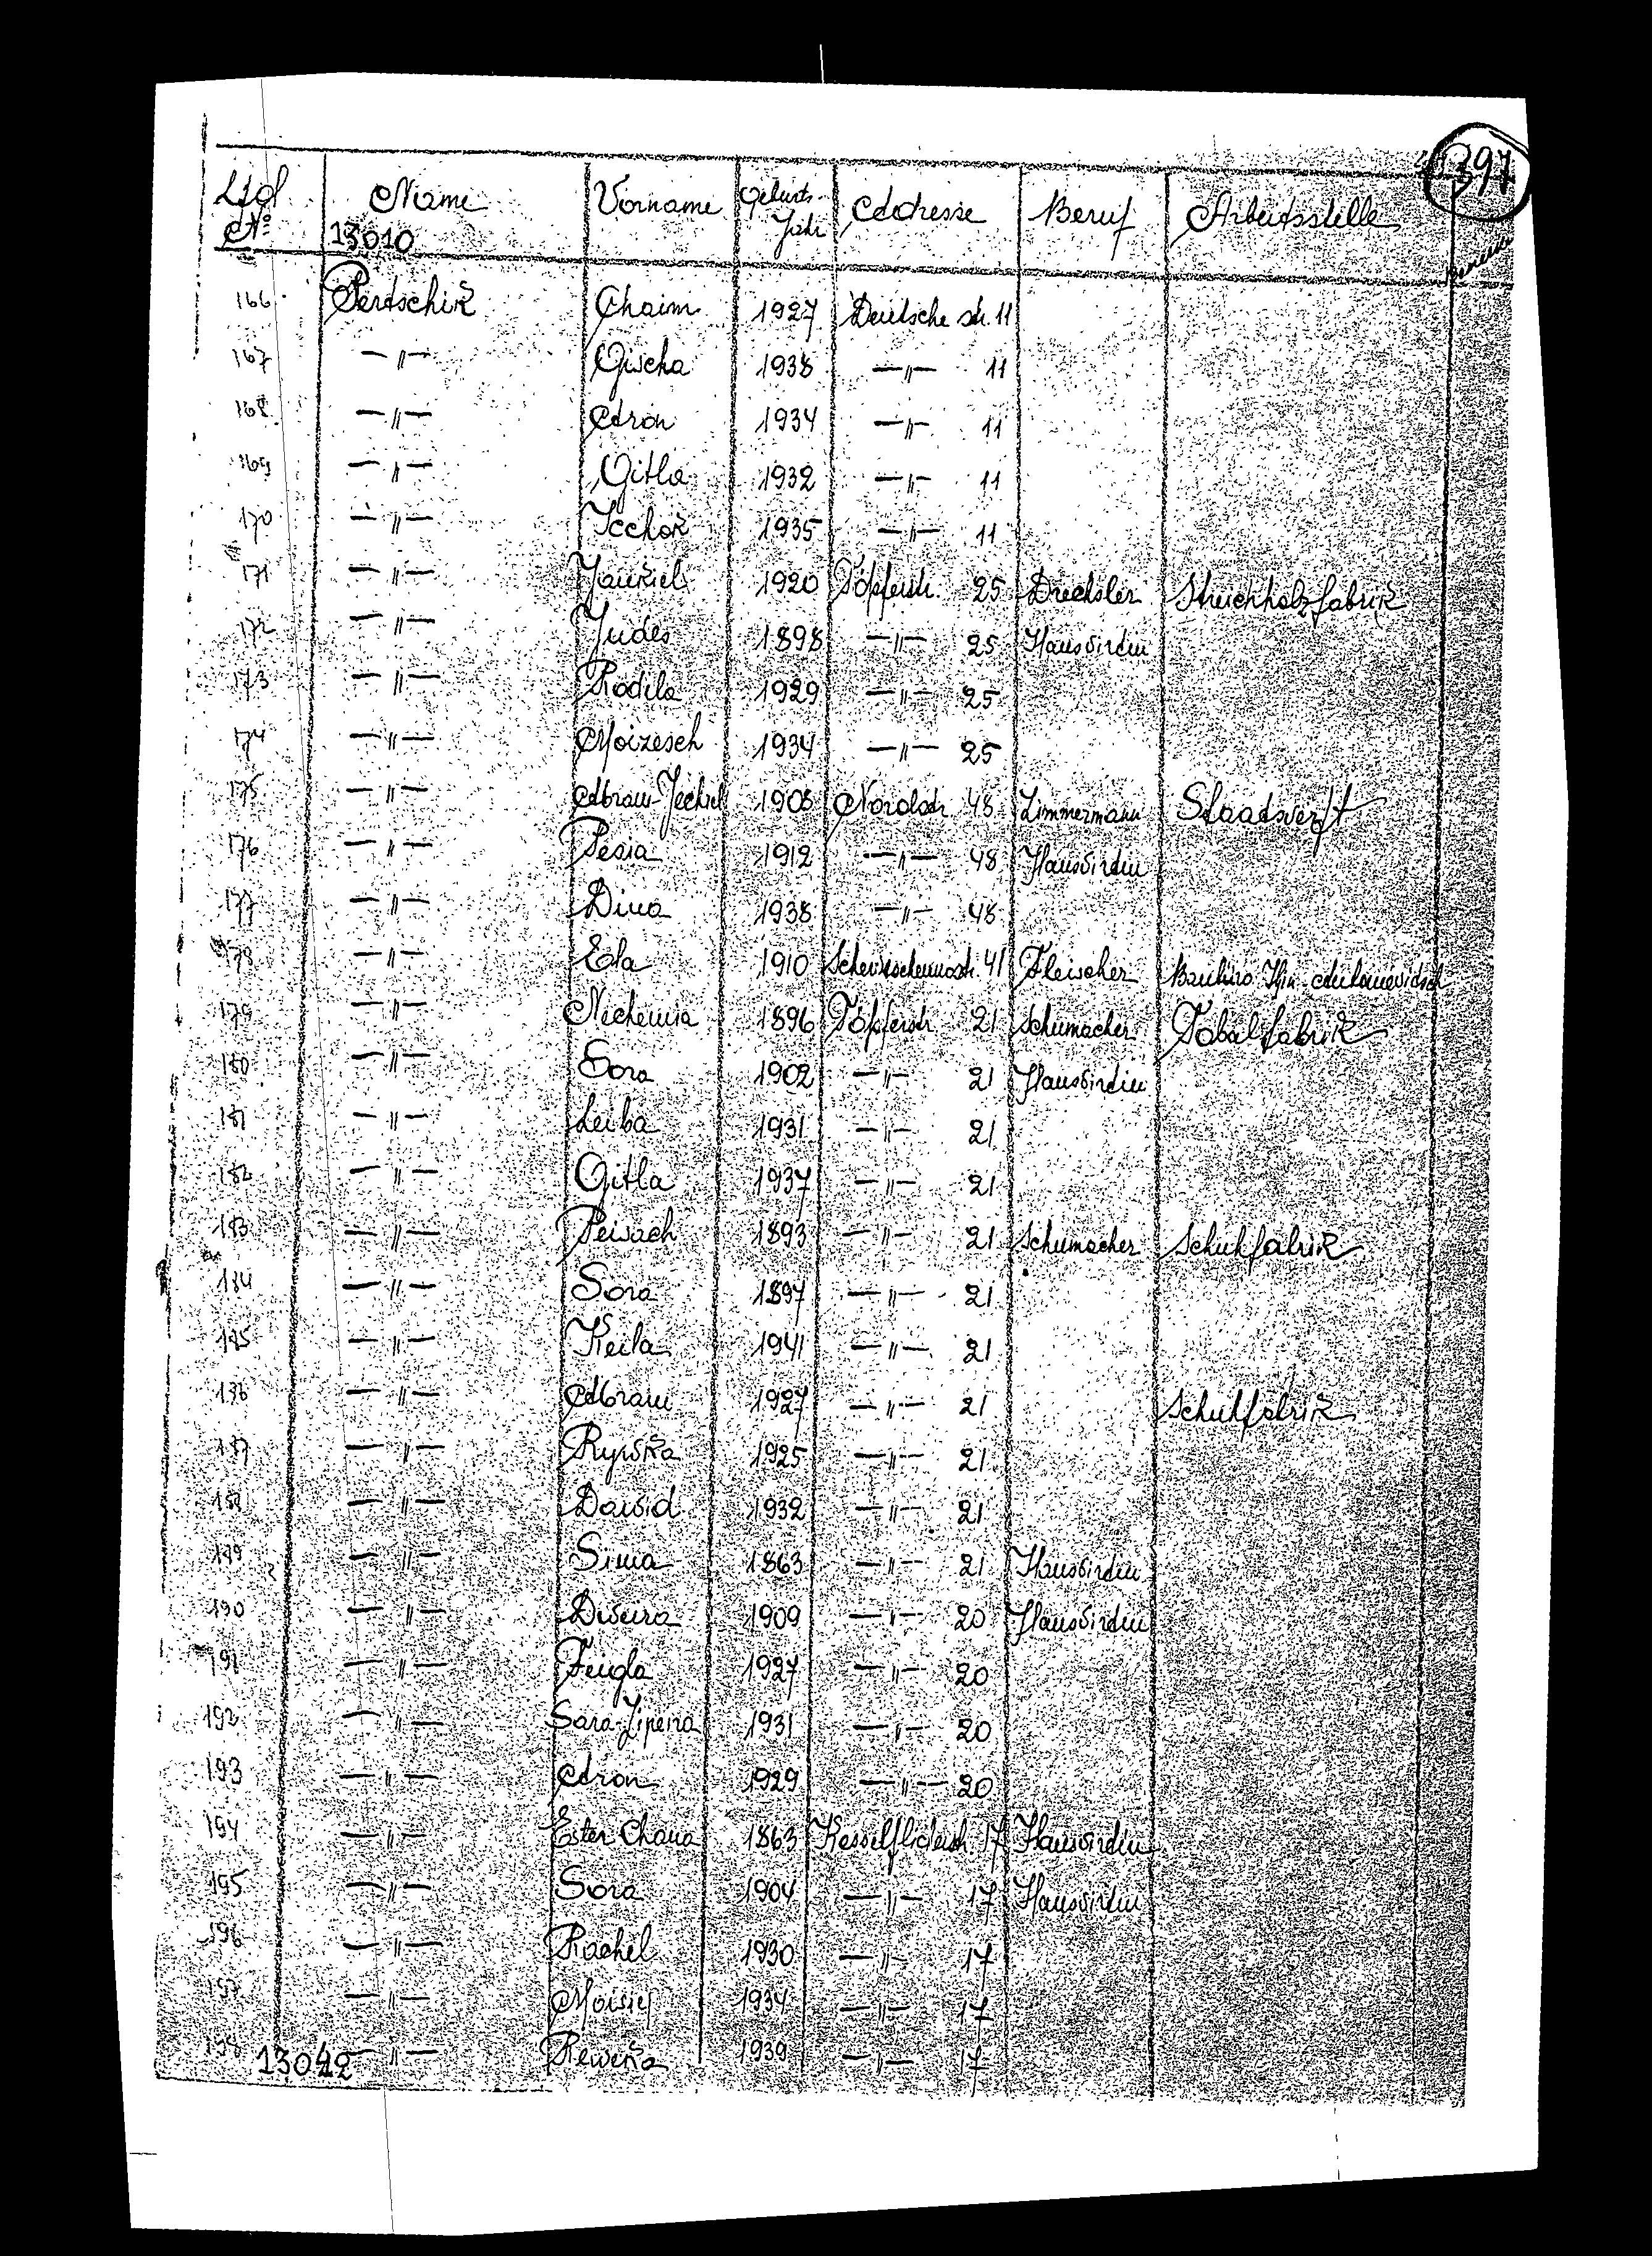 397
Lfd. Name Vorname Geburts- Addresse Beruf Arbeitsstelle
№ 13010 Jahr
166 Pertschik Chaim 1927 Deutsche str. 11
167 —"— Gischa 1938 —"— 11
168 —"— Aron 1934 —"— 11
169 —"— Gitla 1932 —"— 11
170 —"— Icchok 1935 —"— 11
171 —"— Jankiel 1920 Töpferstr. 25 Drechsler Streichholzfabrik
172 —"— Judes 1898 —"— 25 Hauswirdin
173 —"— Rodila 1929 —"— 25
174 —"— Moizesch 1934 —"— 25
175 —"— Abram-Jechiel 1908 Nordstr 48 Zimmermann Staatswerft
176 —"— Pesia 1912 —"— 48 Hauswirdin
177 —"— Dina 1938 —"— 48
178 —"— Ela 1910 41 Fleischer
179 —"— Nechemia 1896 Töpferstr. 21 Schumacher Tobakfabrik
180 —"— Sora 1902 —"— 21 Hauswirdin
181 —"— Leiba 1931 —"— 21
182 —"— Gitla 1937 —"— 21
183 —"— Peisach 1893 —"— 21 Schumacher Schuhfabrik
184 —"— Sora 1897 —"— 21
185 —"— Keila 1941 —"— 21
186 —"— Abram 1927 —"— 21 Schuhfabrik
187 —"— Rywka 1925 —"— 21
188 —"— Dawid 1932 —"— 21
189 —"— Sima 1863 —"— 21 Hauswirdin
190 —"— Dweira 1909 —"— 20 Hauswirdin
191 —"— Feigla 1927 —"— 20
192 —"— Sara-Zipeira 1931 —"— 20
193 —"— Aron 1929 —"— 20
194 —"— Ester Chana 1863 Kesselflickerstr. 17 Hauswirdin
195 —"— Sora 1904 —"— 17 Hauswirdin
196 —"— Rachel 1930 —"— 17
197 —"— Moisiej 1934 —"— 17
198 —"— Reweka 1939 —"— 17
13042